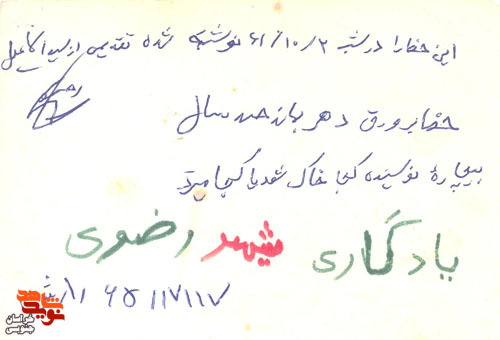 این خط را در شب ۶۱/۱۰/۲ نوشته شده تقدیم از سید کامل
خط بر ورق دهر بماند صد سال
بیچاره نویسنده کجا خاک شود یا کجا میرد
یادگاری شهید رضوی
۶۵ ۱۱۷۱۱۷
نوید شاهد
خراسان جنوبی